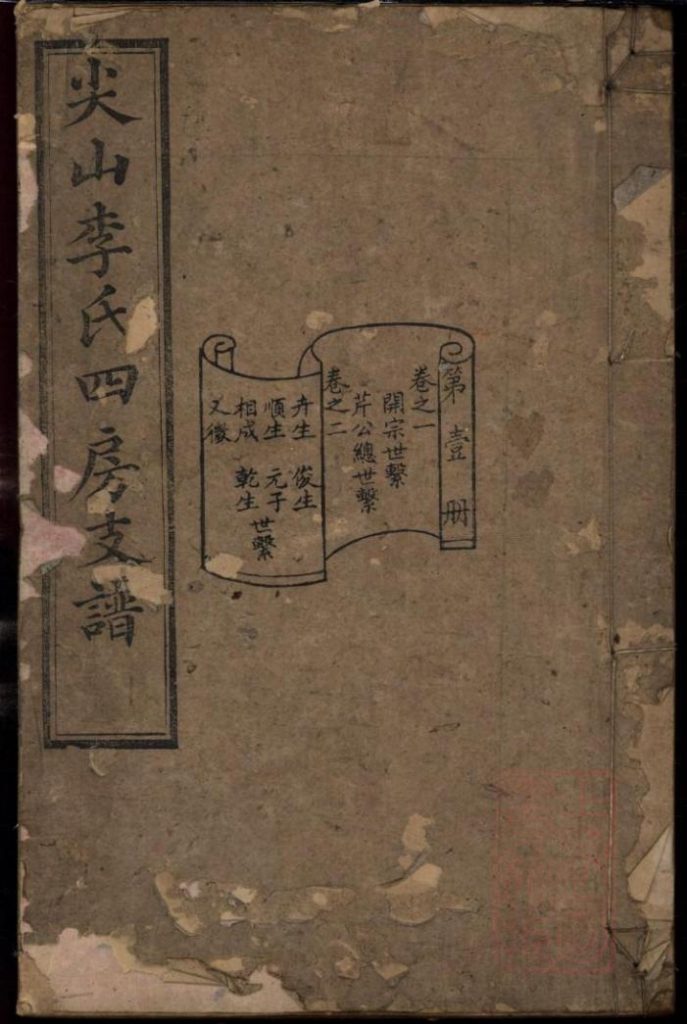 尖山李氏四房支譜
第壹册
卷之一
開宗世繫
芹公總世繫
卷之二
卉生 俊生
順生 元子
相成 乾生
又徵
世繫